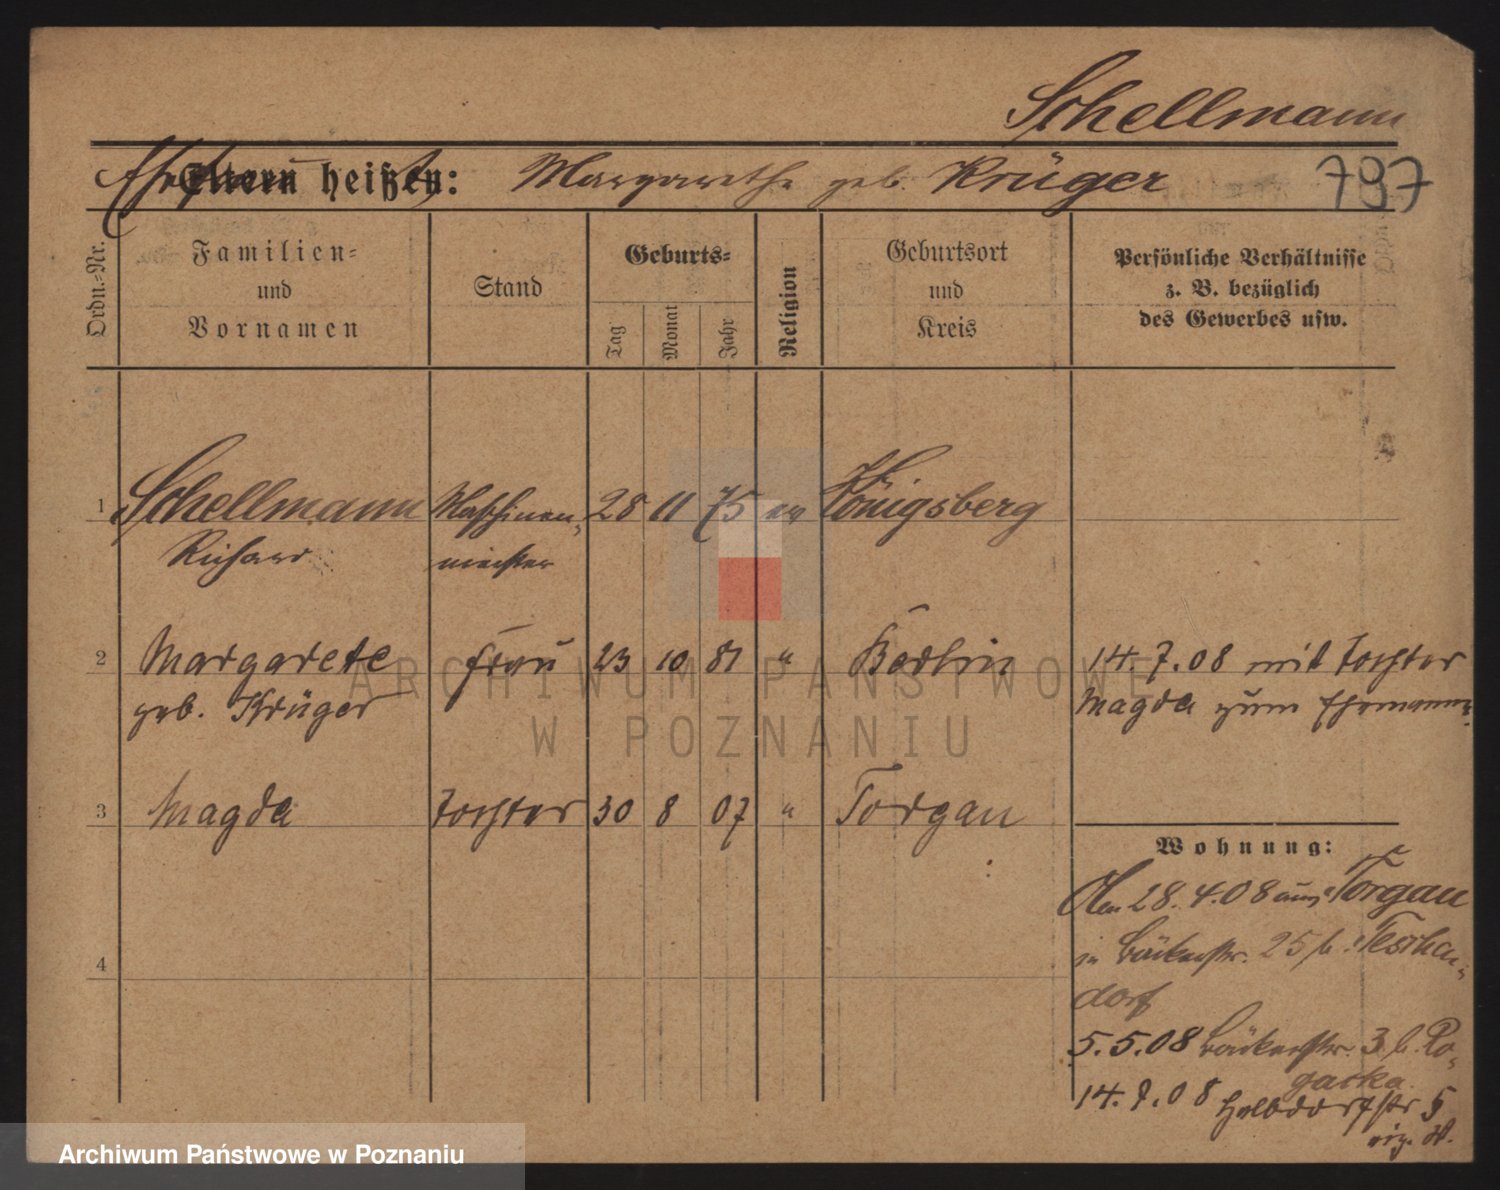 Schellmann
Eltern heißen: Margarethe geb. Krüger 797
Ordn.-Nr.
Familien- und Vornamen
Stand
Geburts-
Tag Monat Jahr
Religion
Geburtsort und Kreis
Persönliche Verhältnisse
z. B. bezüglich
des Gewerbes usw.
1 Schellmann Maschinen- 28 11 75 ev Königsberg
Richard meister
2 Margarete Frau 23 10 81 " Berlin 14.7.08 mit Tochter
geb. Krüger Magda zum Ehemann
3 Magda Tochter 30 8 07 " Torgau
Wohnung:
28.4.08 aus Torgau
in Bäckerstr. 25 b.
4
dorf
5.5.08 Bäckerstr. 3 b. Po-
gacka
14.7.08 Helbdorfstr 5
ARCHIWUM PAŃSTWOWE
W POZNANIU
Archiwum Państwowe w Poznaniu